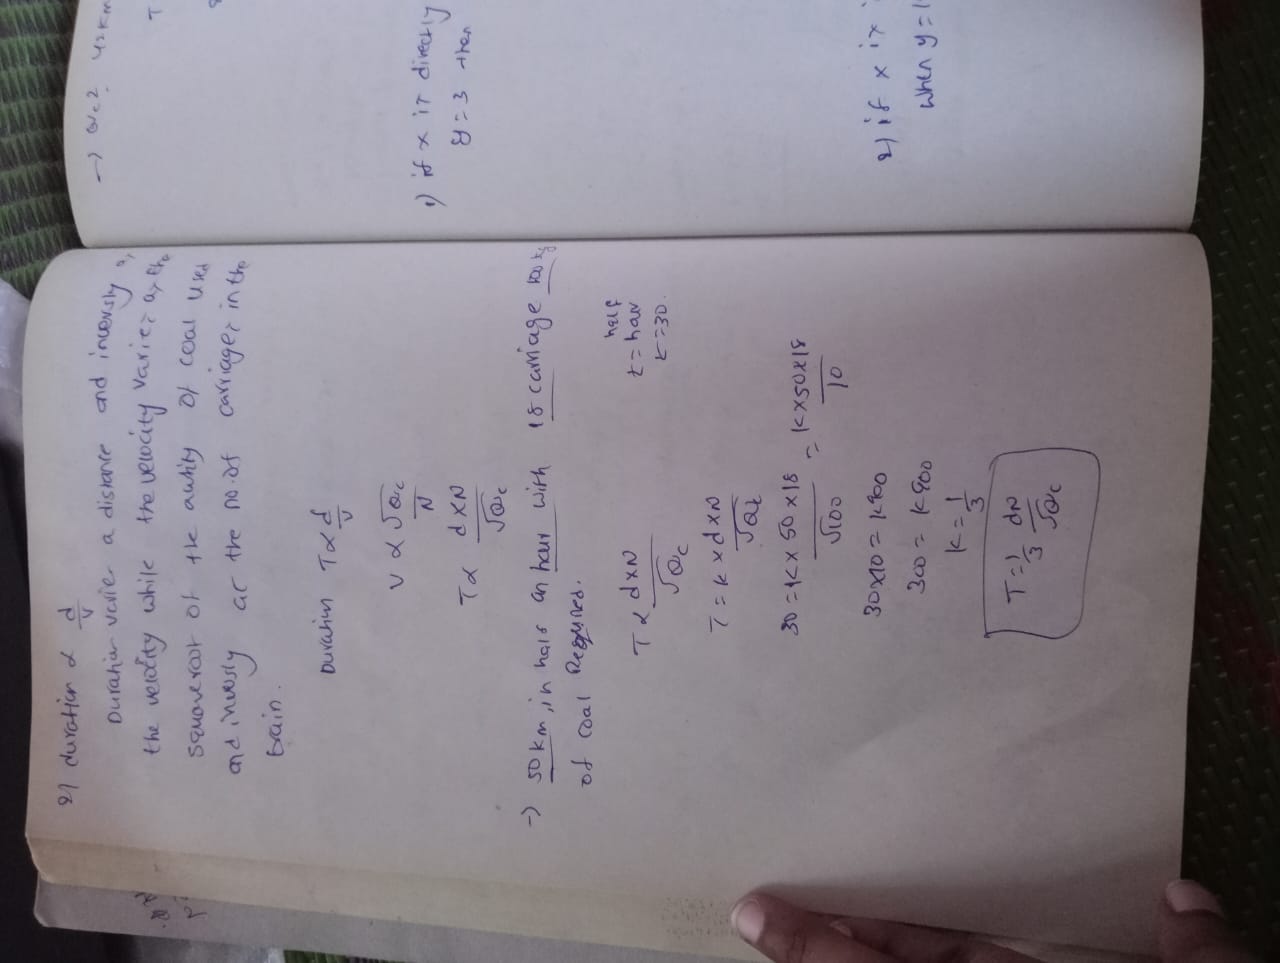 2) duration α d/v
Duration varie a distance and inversly as
the velocity while the velocity varies as the
squareroot of the qutity of coal used
and inversly as the no.of carriages in the
train.
Duration T α d/v
V α √Qc/N
T α d×N/√Qc
→ 50 km, in half an hour with 18 carriage 100 kg
of coal Required.
T α d×N/√Qc
half
t = hour
t = 30.
T = K × d×N/√Qc
30 = K × 50 × 18/√100 = K×50×18/10
30×10 = K900
300 = K900
K = 1/3
T = 1/3 dN/√Qc
→ Qc2 42km
T
1) if x is directly
y = 3 then
2) if x is
when y = 1